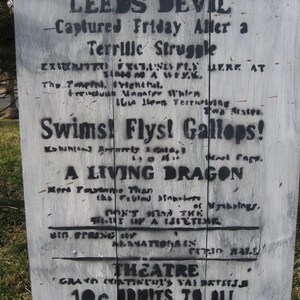 LEEDS DEVIL
Captured Friday After a
Terrific Struggle
EXHIBITED EXCLUSIVELY HERE AT
A WEEK.
The Fearful, Frightful,
Ferocious Monster Which
Has Been Terrorizing
Two States.
Swims! Flys! Gallops!
A LIVING DRAGON
More Fearsome Than
the Fabled Monsters
of Mythology.
DON'T MISS THE
SIGHT OF A LIFETIME
THEATRE
GRAND CONTINUOUS VAUDEVILLE
10c ADMITS TO ALL